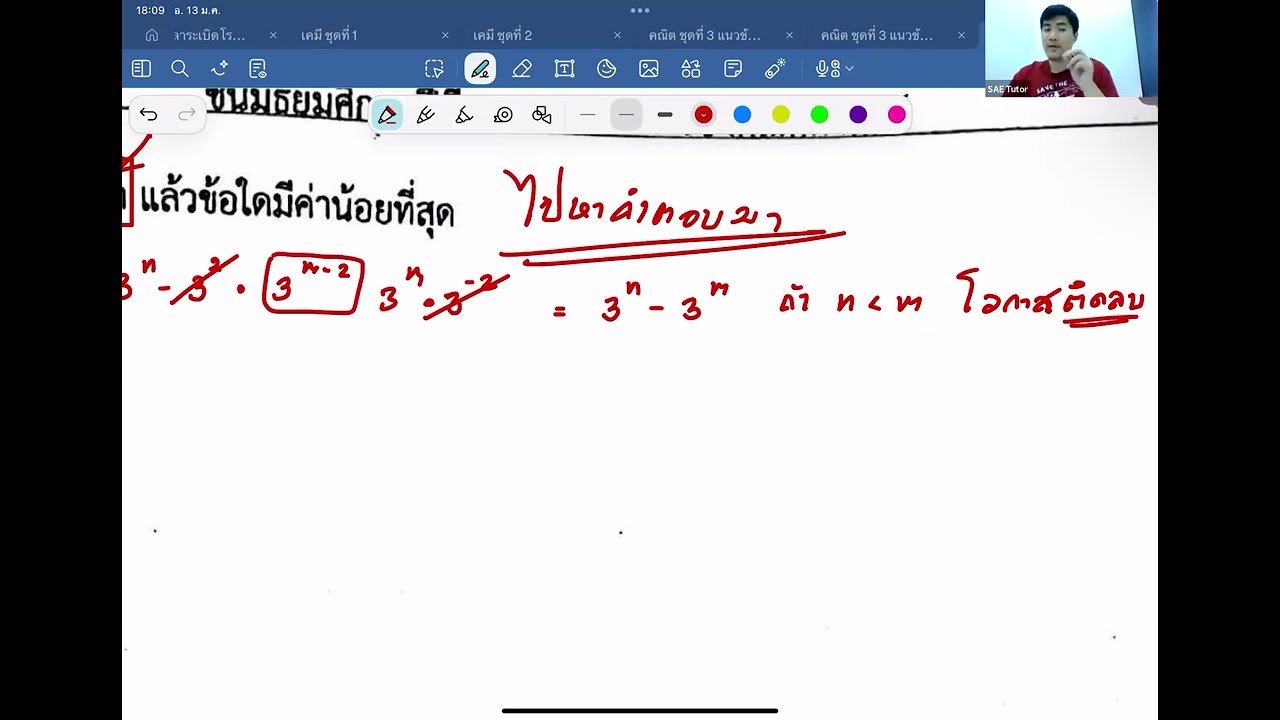 18:09 อ. 13 ม.ค.
าระเบิดโร... เคมี ชุดที่ 1 เคมี ชุดที่ 2 คณิต ชุดที่ 3 แนวข้... คณิต ชุดที่ 3 แนวข้...
SAE Tutor
แล้วข้อใดมีค่าน้อยที่สุด ไปหาคำตอบมา
3ⁿ - 3² · 3ᵐ⁻² 3ᵐ · 3⁻² = 3ⁿ - 3ᵐ ถ้า n < m โอกาสติดลบ